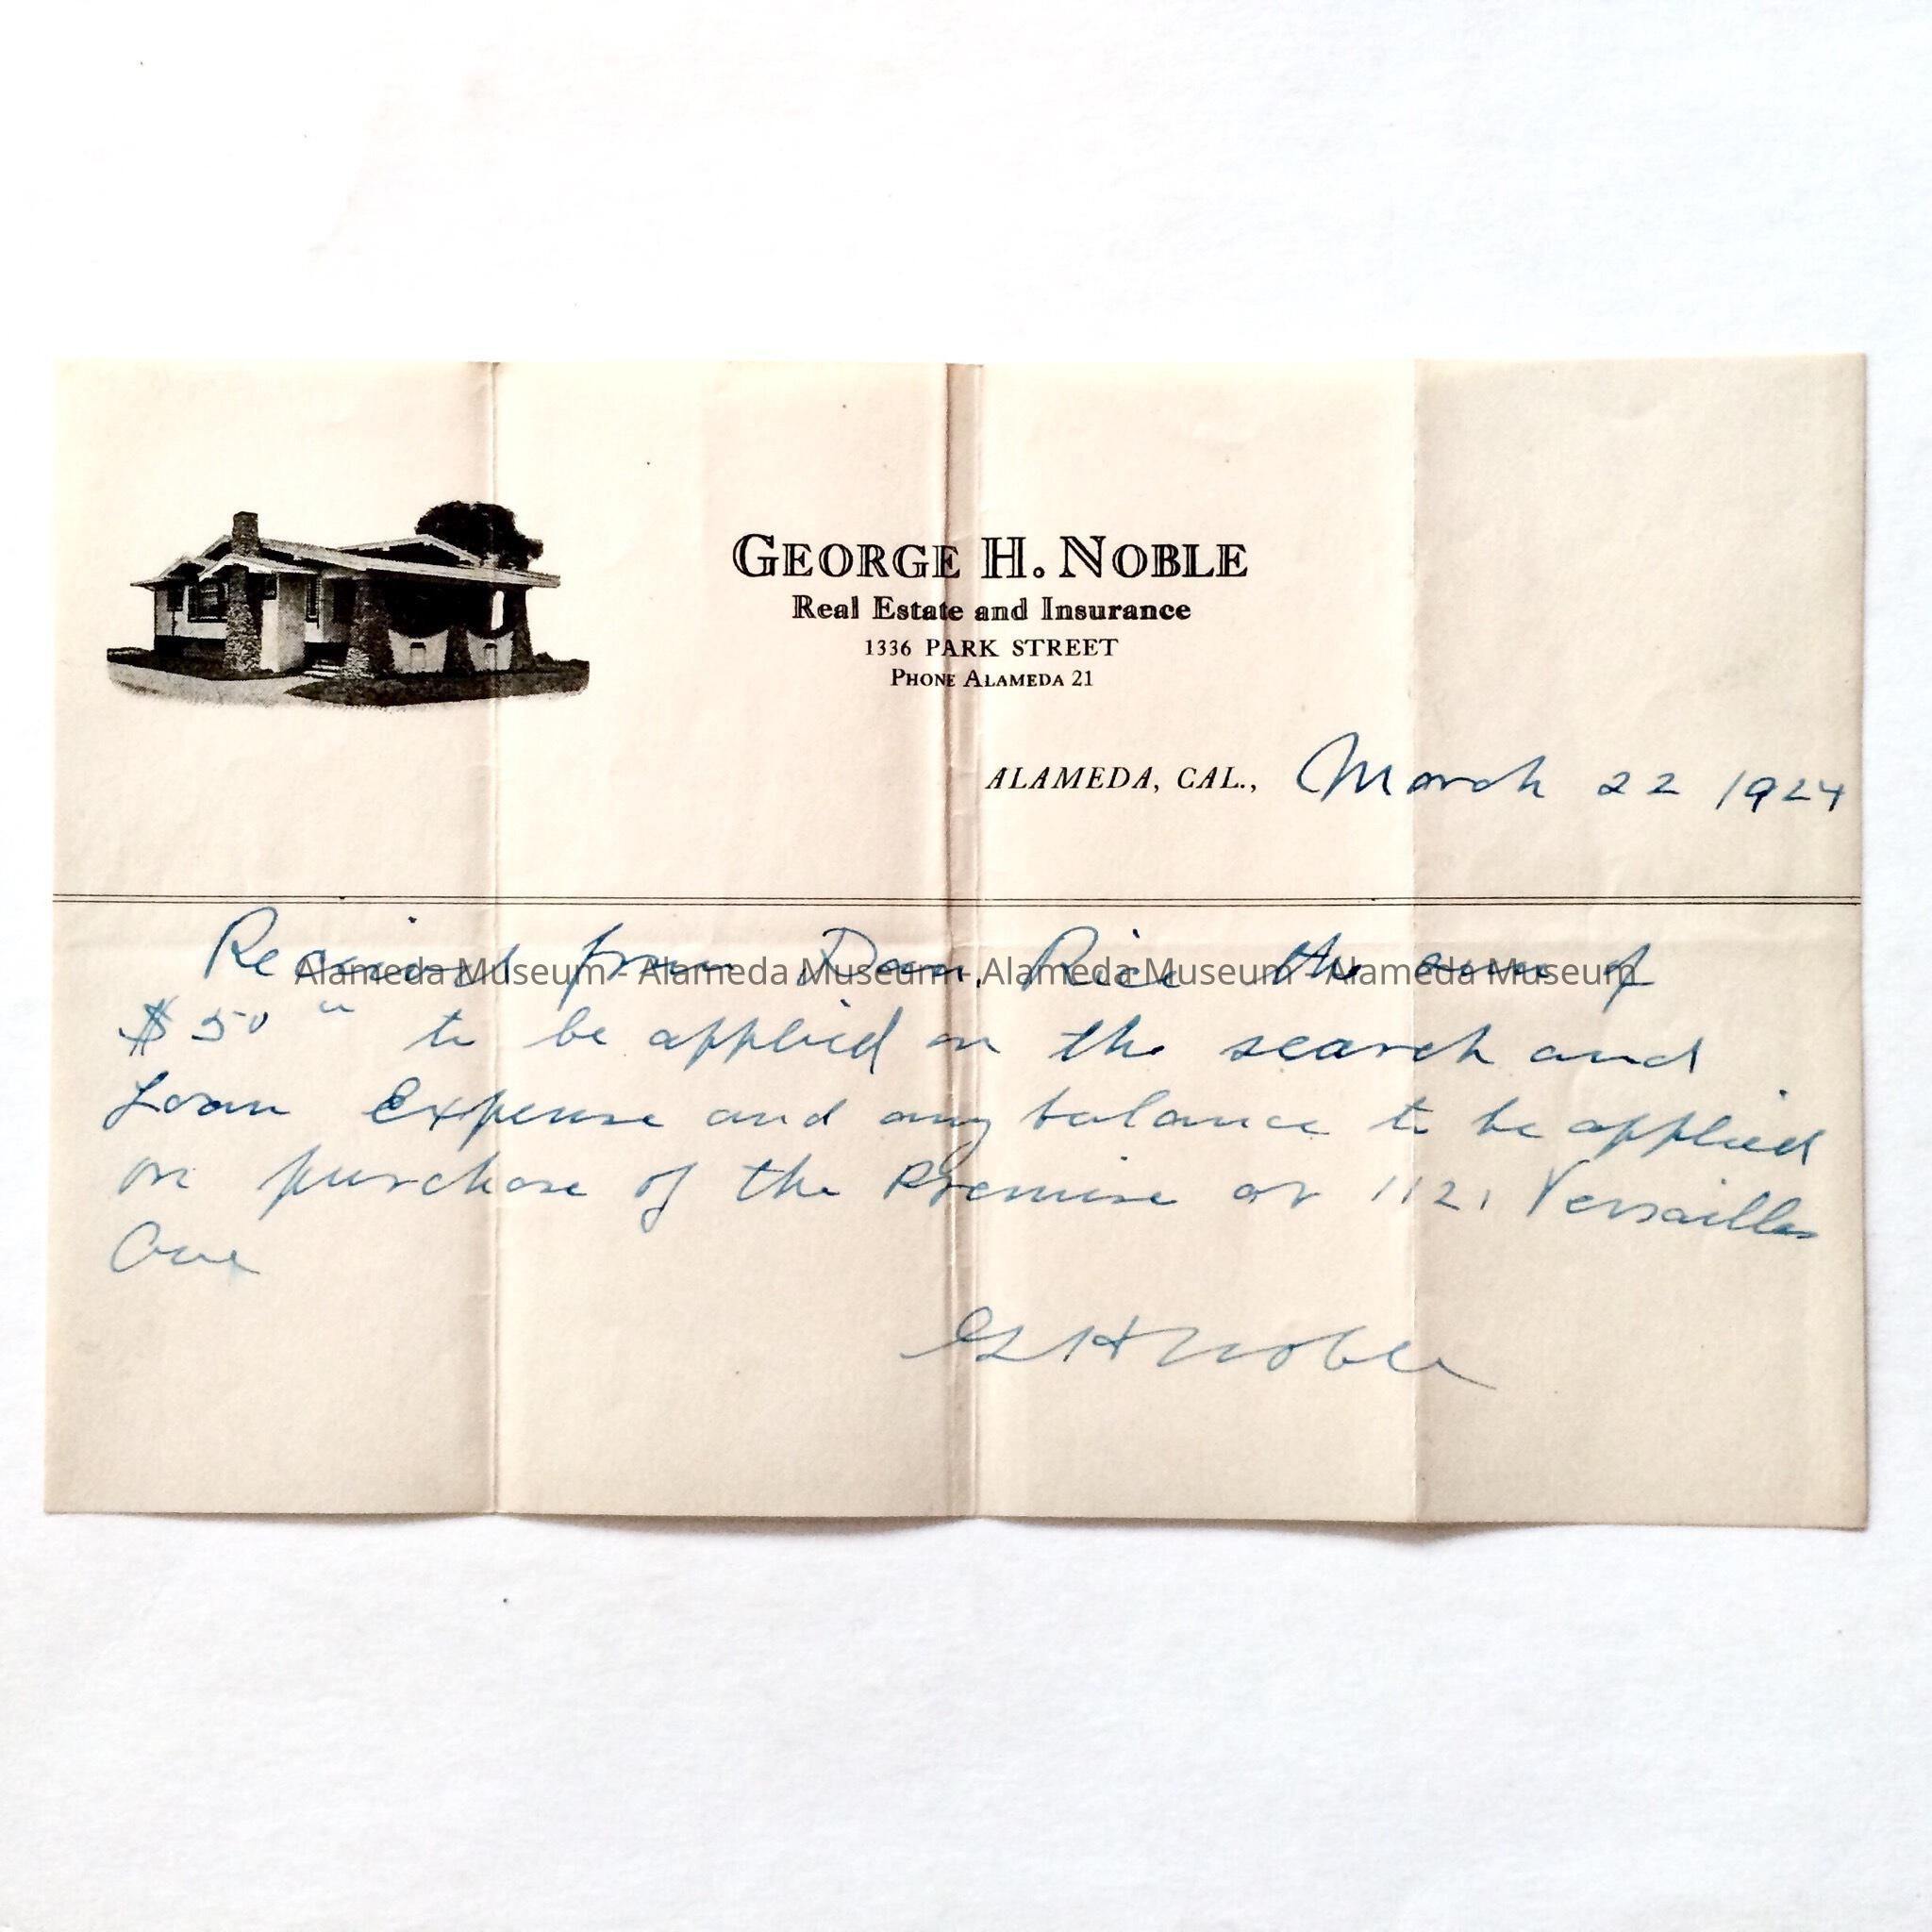 GEORGE H. NOBLE
Real Estate and Insurance
1336 PARK STREET
PHONE ALAMEDA 21
ALAMEDA, CAL., March 22 1924
Received from Dan. Rice the sum of
Alameda Museum - Alameda Museum - Alameda Museum - Alameda Museum
$50 to be applied on the search and
Loan Expense and any balance to be applied
on purchase of the Premise at 1121 Versailles
Ave
G H Noble